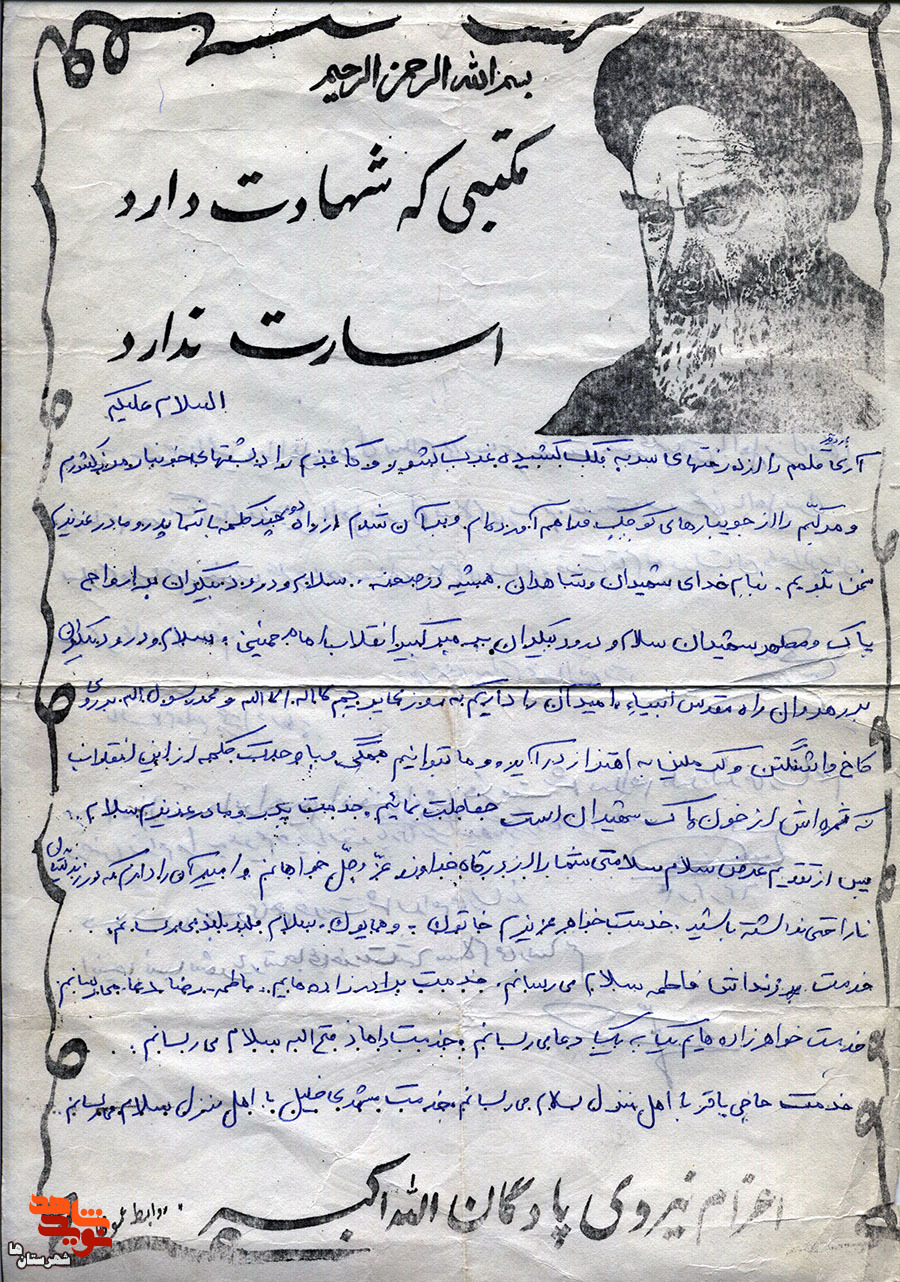 بسم الله الرحمن الرحیم
مکتبی که شهادت دارد
اسارت ندارد
السلام علیکم
آری قلمم را از درختهای سر به فلک کشیده غرب کشور و کاغذم را از
و مرکبم را از جویبارهای کوچک فراهم آورده‌ام و بر آن شدم از راه دور چند کلمه با شما پدر و مادر عزیزم
سخن بگویم. بنام خدای شهیدان و شاهدان همیشه در صحنه. سلام و درود بیکران بر ارواح
پاک و مطهر شهیدان سلام و درود بیکران به رهبر کبیر انقلاب امام خمینی. سلام و درود بیکران
بر رهروان راه مقدس انبیاء. امید آن را داریم که روزی پرچم لااله الا الله و محمد رسول الله بر روی
کاخ واشنگتن و کرملین به اهتزاز درآید و ما بتوانیم همگی با وحدت کلمه از این انقلاب
که ثمره‌اش از خون پاک شهیدان است حفاظت نمائیم. خدمت پدر و مادر عزیزم سلام..
پس از تقدیم عرض سلام سلامتی شما را از درگاه خداوند عزّ و جلّ خواهانم و امید آن را دارم که در زندگیتان
ناراحتی نداشته باشید. خدمت خواهر عزیزم خاتون. و همایون. سلام می رسانم.
خدمت فرزندانش فاطمه سلام می رسانم. خدمت برادرزاده هایم.. فاطمه. رضا دعا می رسانم
خدمت خواهر زاده هایم یکایک دعا می رسانم. خدمت داماد فتح اله سلام می رسانم...
خدمت حاجی باقر با اهل منزل سلام می رسانم. خدمت مشهدی خلیل با اهل منزل سلام می رسانم...
اعزام نیروی پادگان الله اکبر
روابط عمومی
نوید شاهد
شهرستان ها